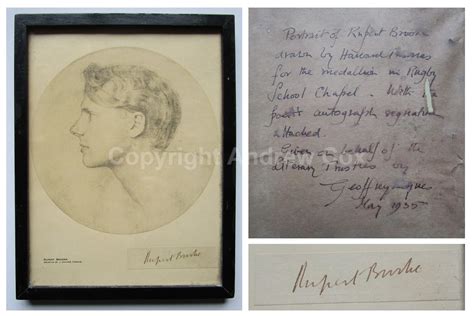 RUPERT BROOKE
Rupert Brooke
Portrait of Rupert Brooke
drawn by
for the medallion in Rugby
School Chapel. With
autograph signature
attached.
Given on behalf of the
Literary Trustees by
Geoffrey Keynes
May 1935
Rupert Brooke
Copyright Andrew Cox